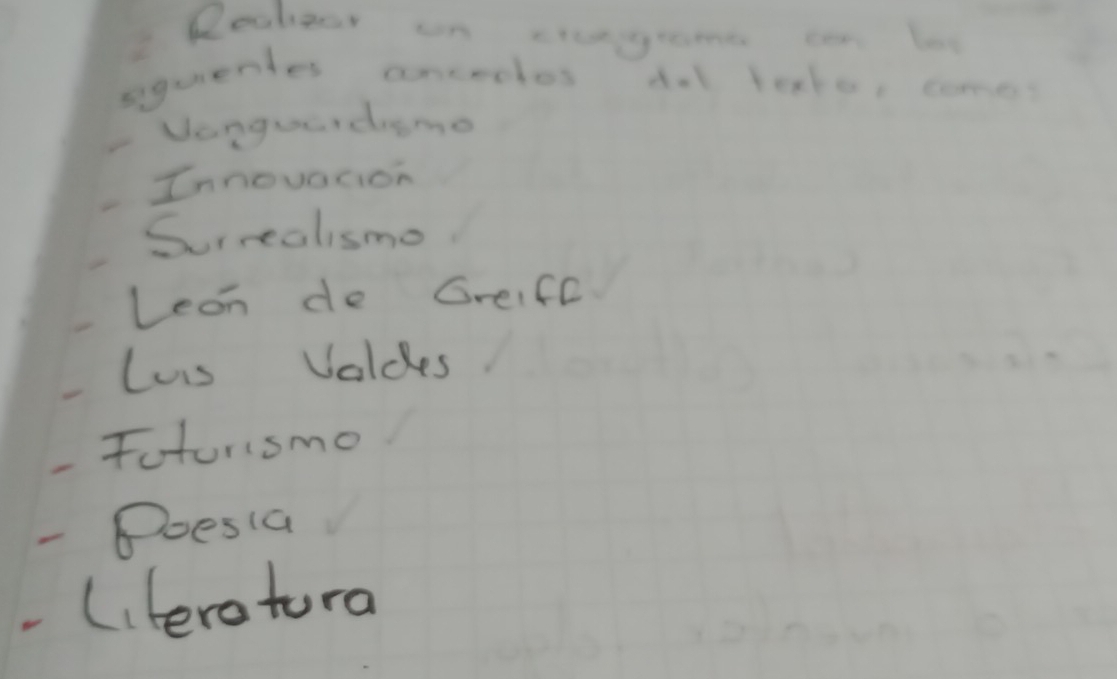 Realizar un crucigrama con los
siguientes conceptos del texto, como:
- Vanguardismo
- Innovación
- Surrealismo
- León de Greiff
- Luis Valdes
- Futurismo
- Poesia
- Literatura